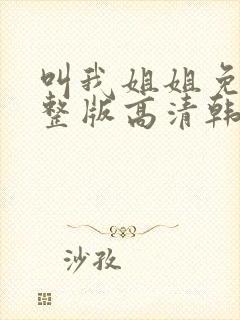 叫我姐姐免
整版高清韩
沙孜